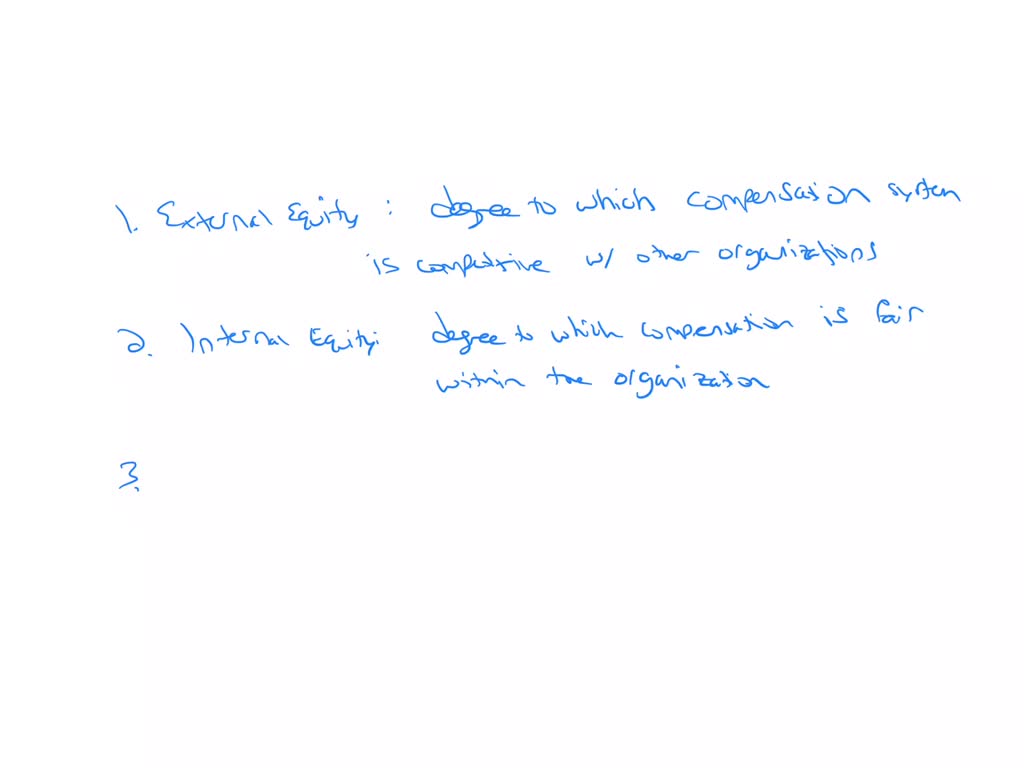 1. External Equity : degree to which compensation system
is competitive w/ other organizations
2. Internal Equity: degree to which compensation is fair
within the organization
3.